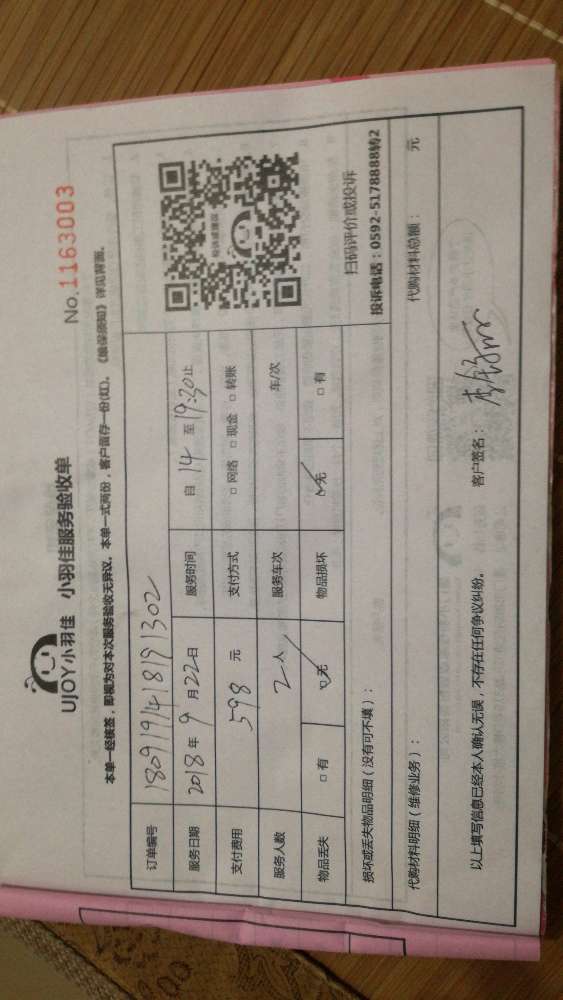 UJOY小羽佳 小羽佳服务验收单
No.1163003
本单一经核签，即视为对本次服务验收无异议。本单一式两份，客户留存一份(红)。《维保须知》详见背面。
订单编号 1809191418191302
服务日期 2018年9月22日 服务时间 自14至19:30止
支付费用 598元 支付方式 □网络 □现金 □转账
服务人数 2人 服务车次 车/次
物品丢失 □有 ☑无 物品损坏 ☑无 □有
扫码评价或投诉
投诉电话：0592-5178888转2
损坏或丢失物品明细（没有可不填）：
代购材料明细（维修业务）： 代购材料总额： 元
以上填写信息已经本人确认无误，不存在任何争议纠纷。 客户签名：